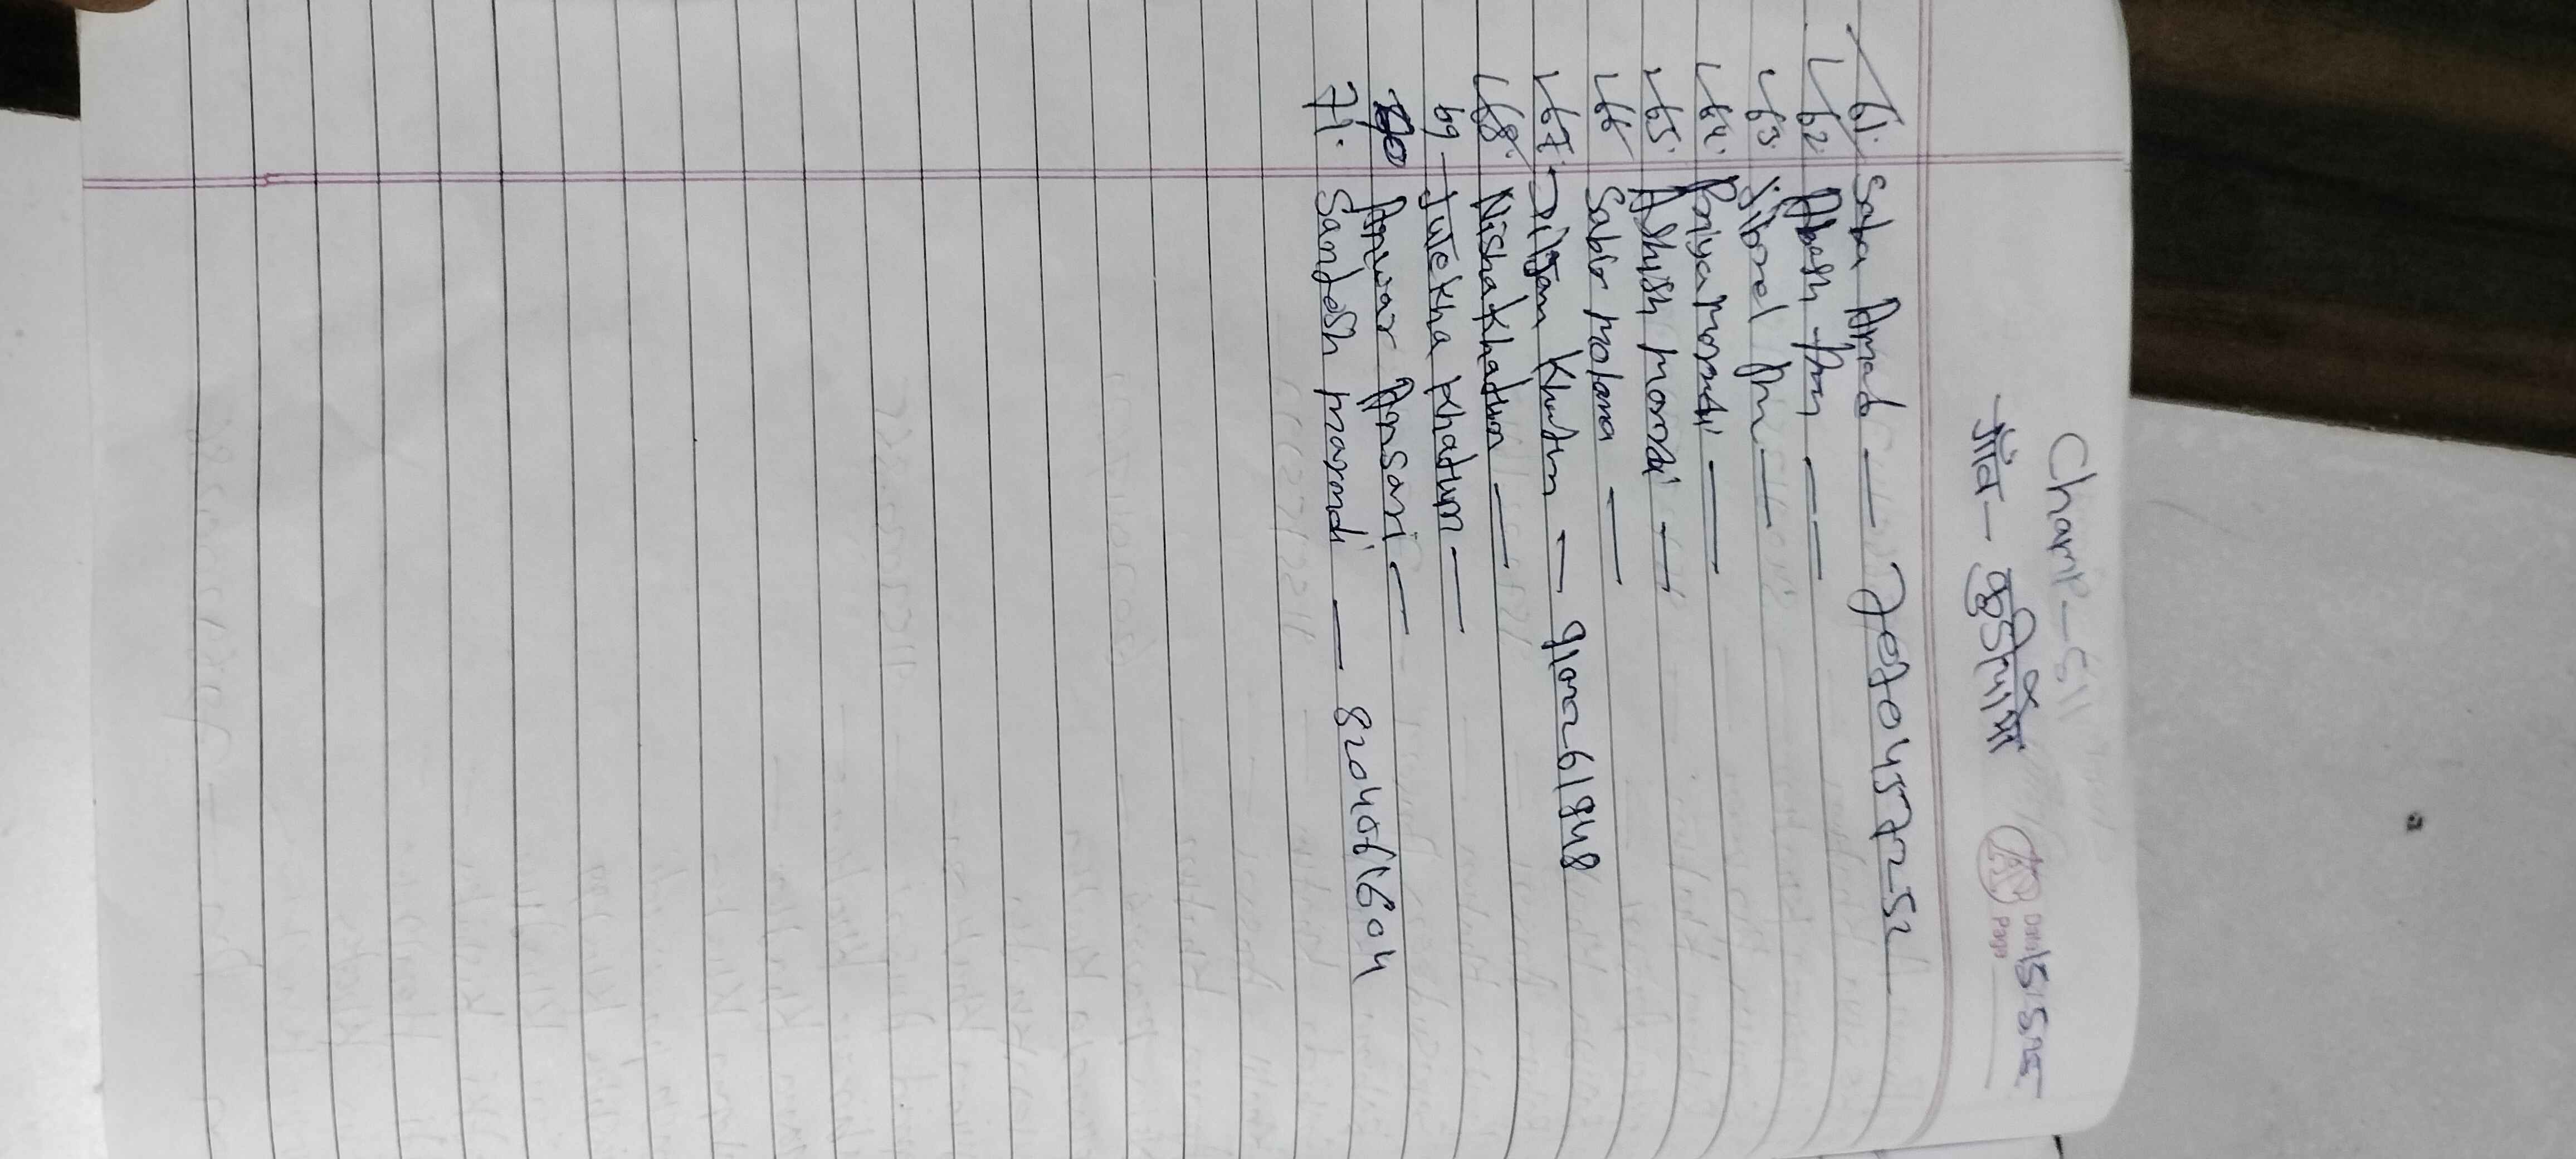 Champ-Ell
गाँव - कुड़ियाम
Date
Page
61. Saba Ahmad — 7070457252
62. Akash Pm —
63. Jibrel Pm —
64. Priya Marandi —
65. Ashish marandi —
66 Sabir molana —
67. Diljan Khatun — 9102261848
68. Nisha Khatun —
69 - Julekha Khatun —
70 Anwar Ansari —
71. Sandesh marandi — 8204061604